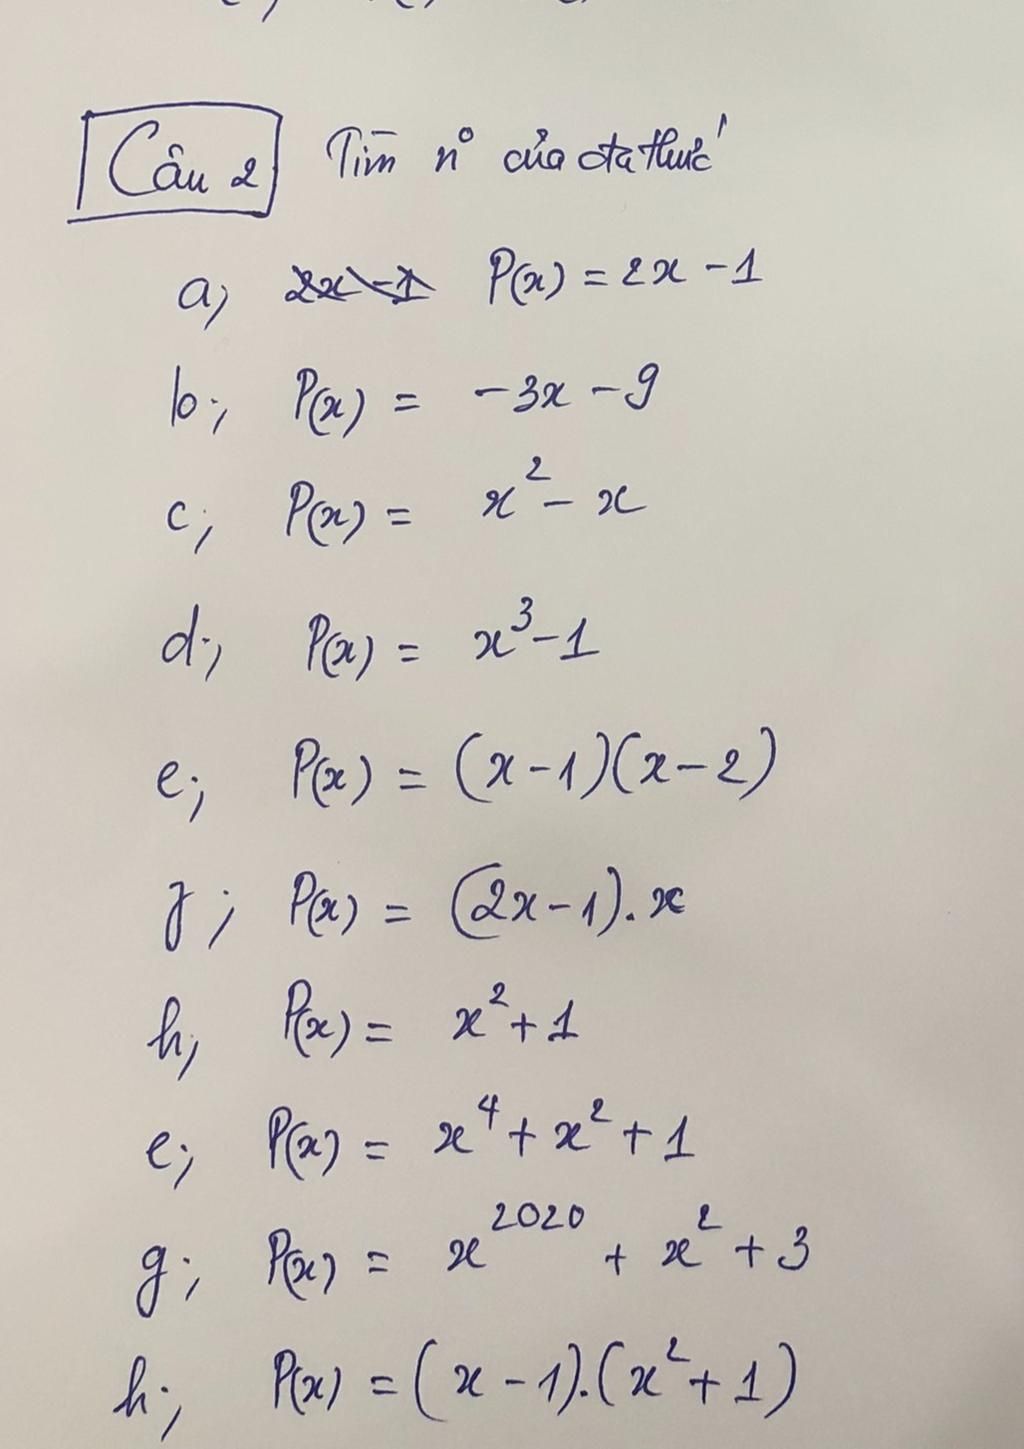 Câu 2 Tìm n° của đa thức
a, 2x-1 P(x) = 2x - 1
b, P(x) = -3x - 9
c, P(x) = x² - x
d, P(x) = x³ - 1
e, P(x) = (x-1)(x-2)
f, P(x) = (2x-1).x
h, P(x) = x² + 1
e, P(x) = x⁴ + x² + 1
g, P(x) = x²⁰²⁰ + x² + 3
h, P(x) = (x-1).(x²+1)